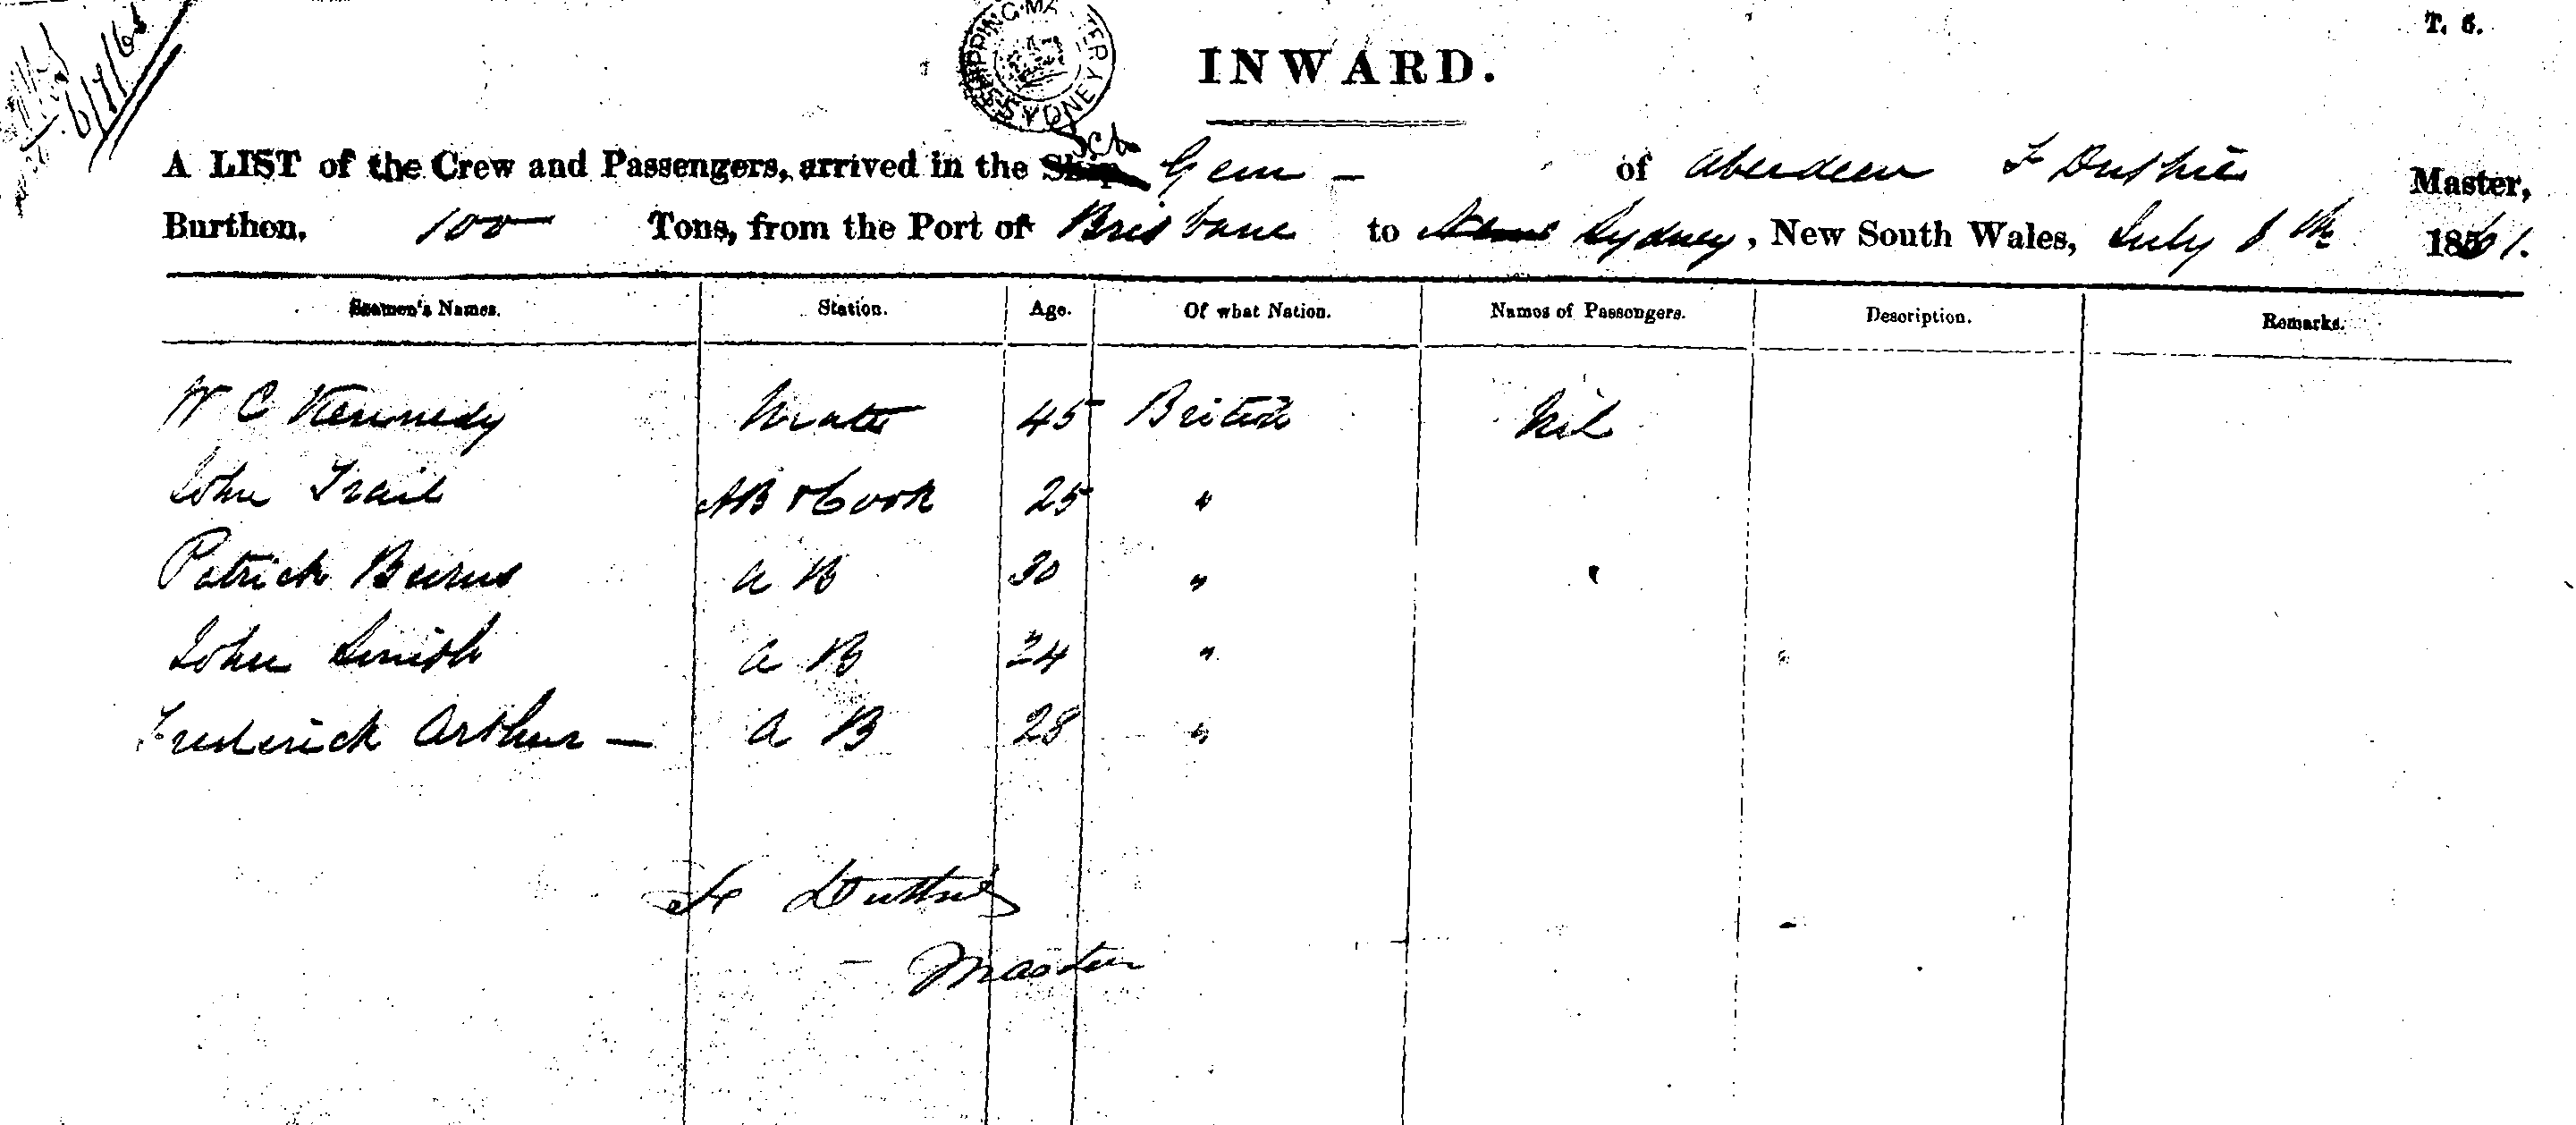 T. 6.
SHIPPING MASTER SYDNEY
INWARD.
Sch
A LIST of the Crew and Passengers, arrived in the Ship Gem - of Aberdeen F Duthie Master,
Burthen, 100 Tons, from the Port of Brisbane to Sydney, New South Wales, July 8th 1861.
Seamen's Names. Station. Age. Of what Nation. Names of Passengers. Description. Remarks.
W C Kennedy Mate 45 British Nil
John Trail AB & Cook 25 "
Patrick Burns A B 30 "
John Smith A B 24 "
Frederick Arthur — A B 28 "
F Duthie
Master